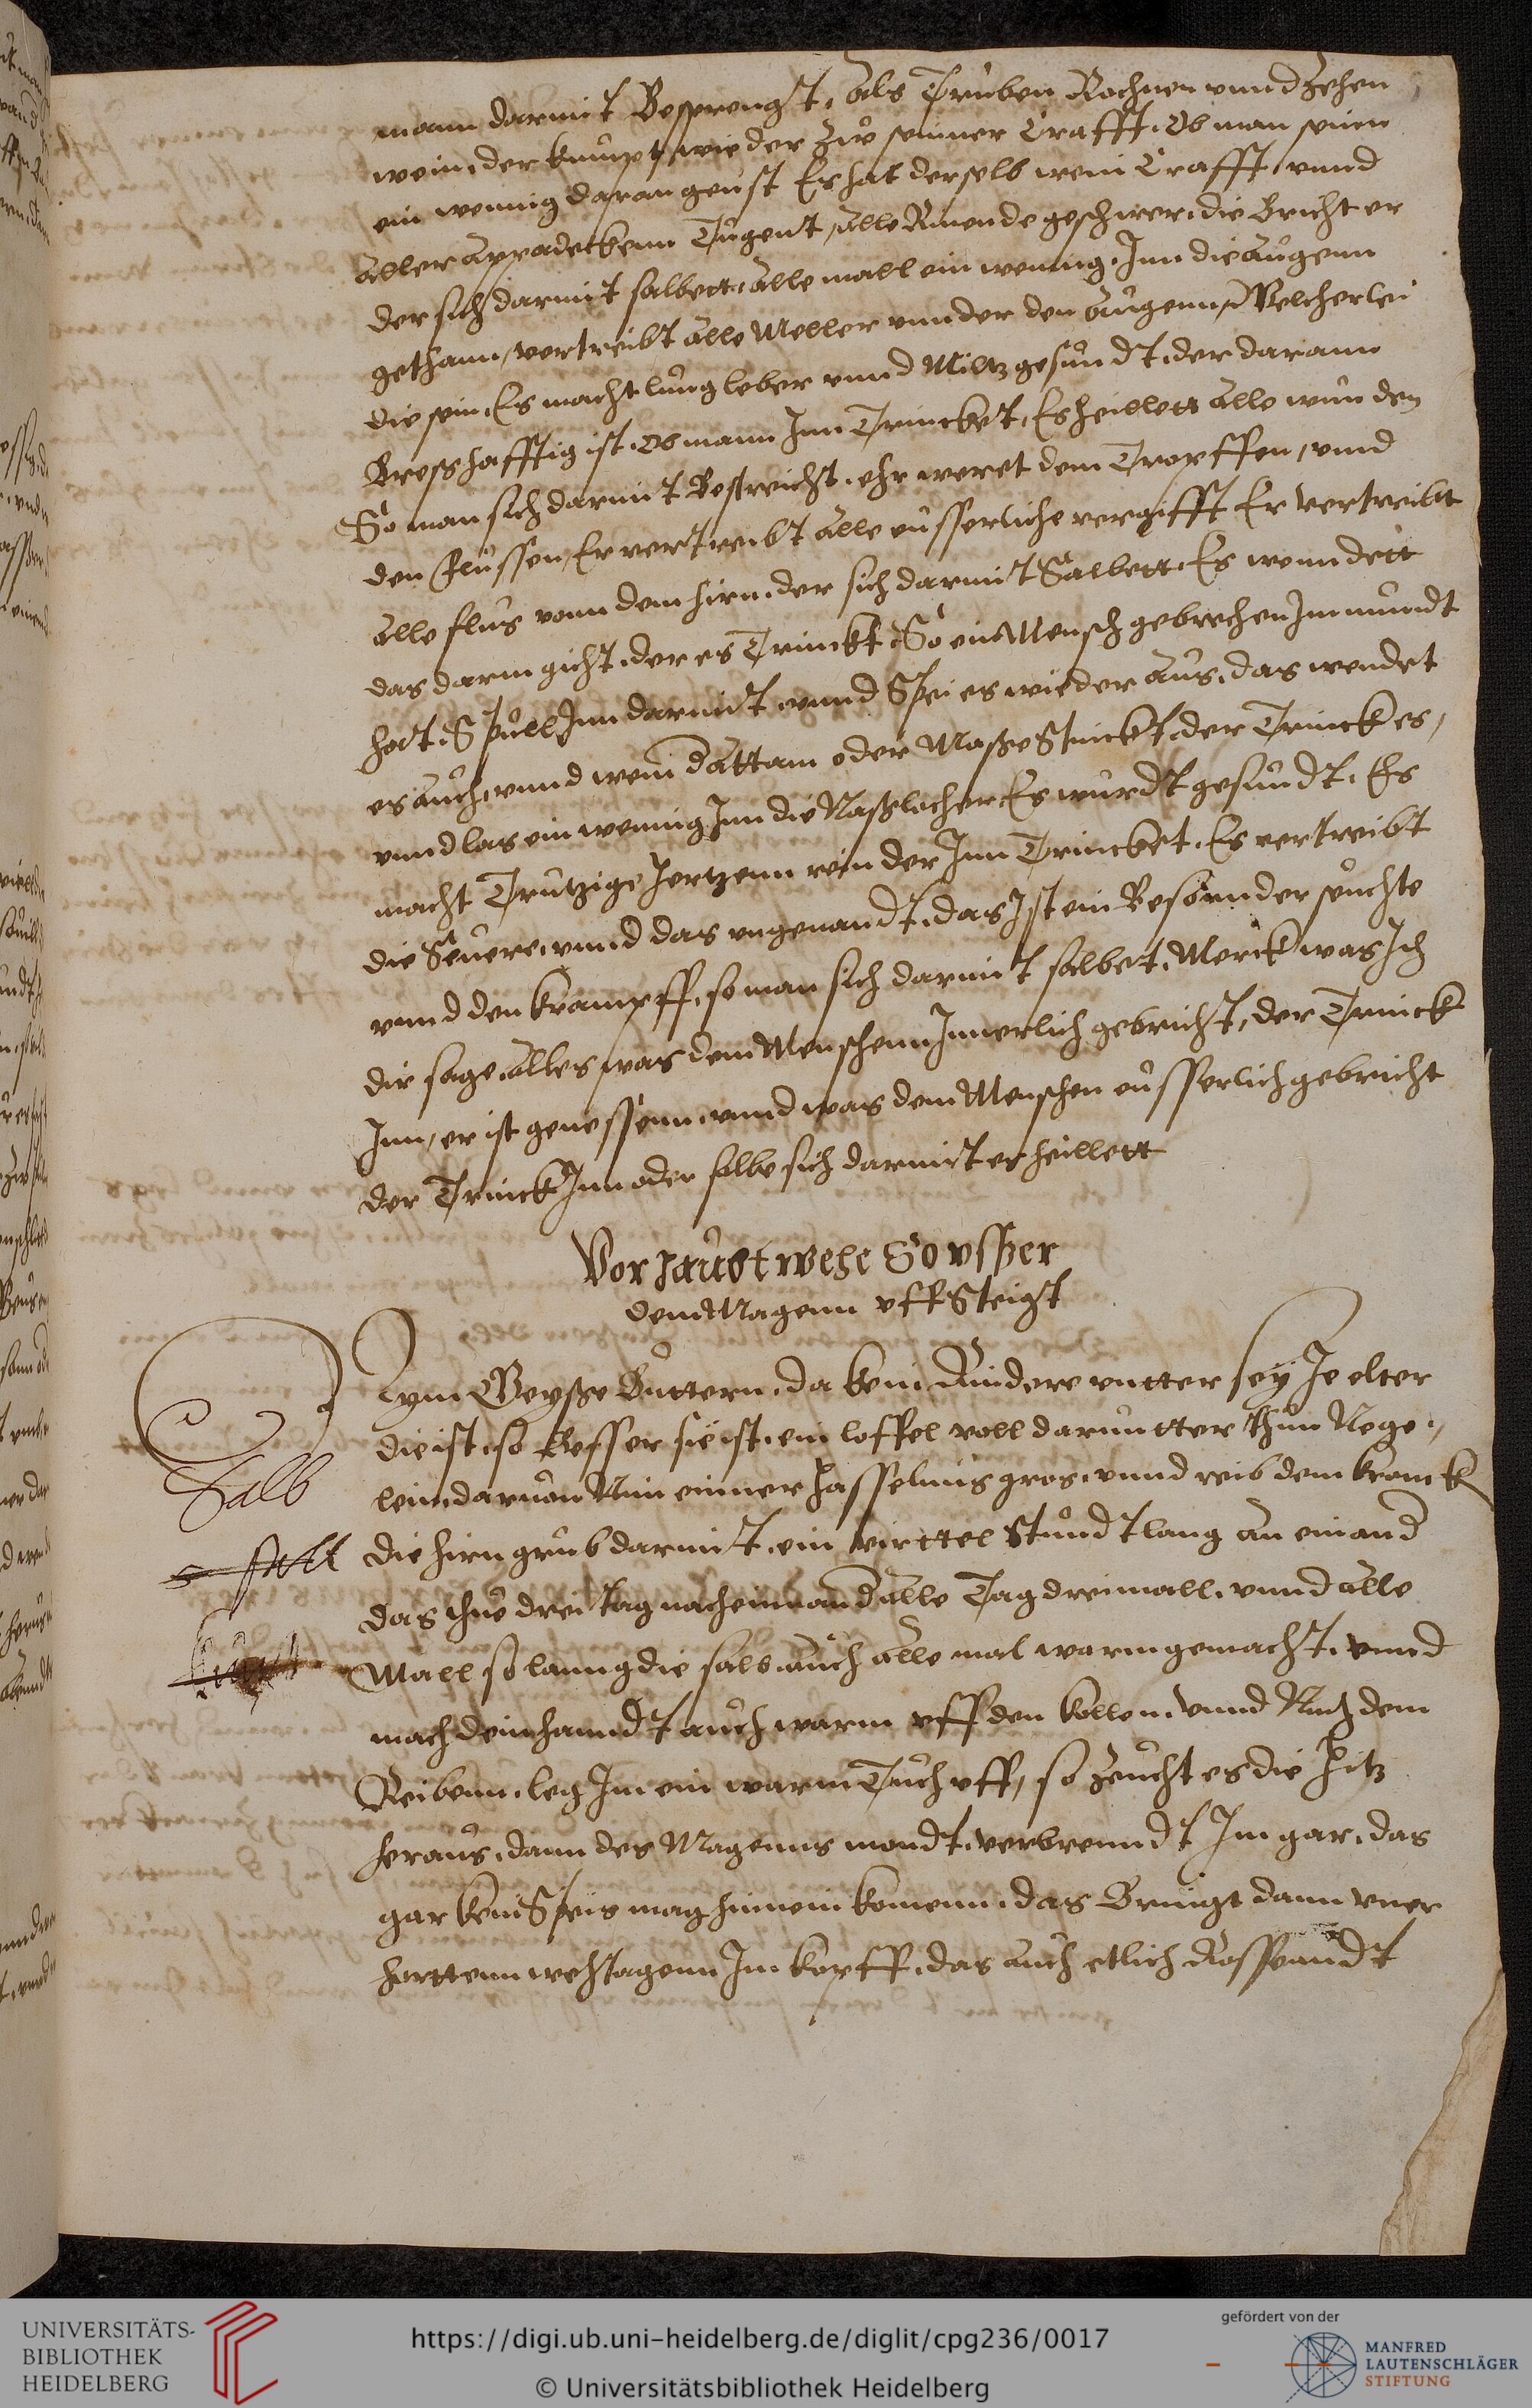 mann darmit Besprengt, Als Truben Rochner unnd Zehen
wein, der kumpt wieder Zu seinner Crafft, Ob man seinen
ein wennig daran geust Es hat derselb wein Crafft, unnd
Aller Appadeckenn Tugent, Alle Rinende geschwer, die bricht er
der sich darmit salbett, Alle mall ein wennig, Inn die Augenn
gethann, vertreibt Alle Meller unnder den Augenn, Welcherlei
die sein, Es macht lung leber unnd Miltz gesundt, der darann
Bresthafftig ist, Ob mann Inn Trincket, Es heillett Alle wunden
So man sich darmit Bestreicht, ehr weret dem Tropffen, unnd
den Flussen, Er vertreibt Alle eusserliche vergifft Er vertreibt
Alle flus vonn dem hirn, der sich darmit Salbett, Es wenndett
das darmgicht, der es Trinckt, So ein Mensch gebrechen Im mundt
hat, Spull Inn darmit unnd Spei es wieder Aus, das wendet
es Auch, unnd wem d Attam oder Nasse Stinckt, der Trinck es,
unnd las ein wennig Inn die Naslocher Es wurdt gesundt, Es
macht Trutzige hertzenn rein der Inn Trincket, Es vertreibt
die Seuere, unnd das ungenandt, das Ist ein Besonnder seuchte
unnd den krampff, so man sich darmit salbet, Merck was Ich
dir sage, Alles was dem Menschenn Innerlich gebricht, der Trinck
Inn, er ist genessenn, unnd was dem Menschen eusserlich gebricht
der Trinck Inn oder salbe sich darmit er heillett
Vor haubt wehe So usser
dem Magenn uff Steigt
Nym Geysse Buttern, da kein Andere untter sey Je elter
die ist, so Besser sie ist, ein loffel voll daruntter thun Nege,
lein, darvon Nim einner hasselnus gros, unnd reib dem kranck
Salb
die hirngrub darmit, ein virttel Stundt lang an einand
das thue drei tag nacheinnand Alle Tag dreimall, unnd Alle
Mall so lanng die salb, auch Alle mal warm gemacht, unnd
mach dein hanndt auch warm uff den kollen, unnd Nach dem
Reibenn, leg Im ein warm Tuch uff, so Zeucht es die hitz
heraus, dann des Magenns mondt, verbrenndt Im gar, das
gar kein Speis mag hinnein komenn, das Bringt dann uner
horttenn wehtagenn Im kopff, das Auch etlich
UNIVERSITÄTS-
BIBLIOTHEK
HEIDELBERG
https://digi.ub.uni-heidelberg.de/diglit/cpg236/0017
© Universitätsbibliothek Heidelberg
gefördert von der
MANFRED
LAUTENSCHLÄGER
STIFTUNG